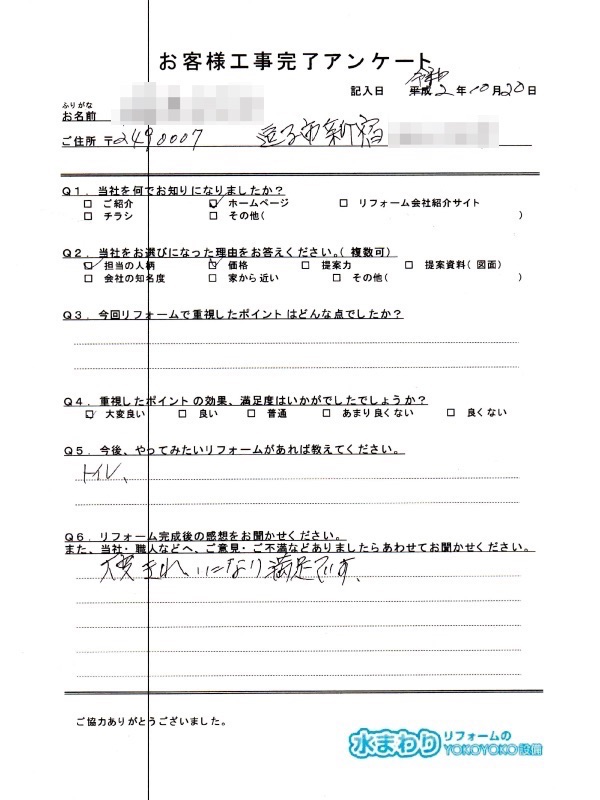 お客様工事完了アンケート
記入日 平成 令和 2年10月20日
ふりがな
お名前
ご住所 〒2490007 逗子市新宿
Q1．当社を何でお知りになりましたか？
□ ご紹介 ☑ ホームページ □ リフォーム会社紹介サイト
□ チラシ □ その他( )
Q2．当社をお選びになった理由をお答えください。(複数可)
☑ 担当の人柄 ☑ 価格 □ 提案力 □ 提案資料(図面)
□ 会社の知名度 □ 家から近い □ その他( )
Q3．今回リフォームで重視したポイントはどんな点でしたか？
Q4．重視したポイントの効果、満足度はいかがでしたでしょうか？
☑ 大変良い □ 良い □ 普通 □ あまり良くない □ 良くない
Q5．今後、やってみたいリフォームがあれば教えてください。
トイレ、
Q6．リフォーム完成後の感想をお聞かせください。
また、当社・職人などへ、ご意見・ご不満などありましたらあわせてお聞かせください。
大変きれいになり満足です、
ご協力ありがとうございました。
水まわりリフォームの
YOKOYOKO設備